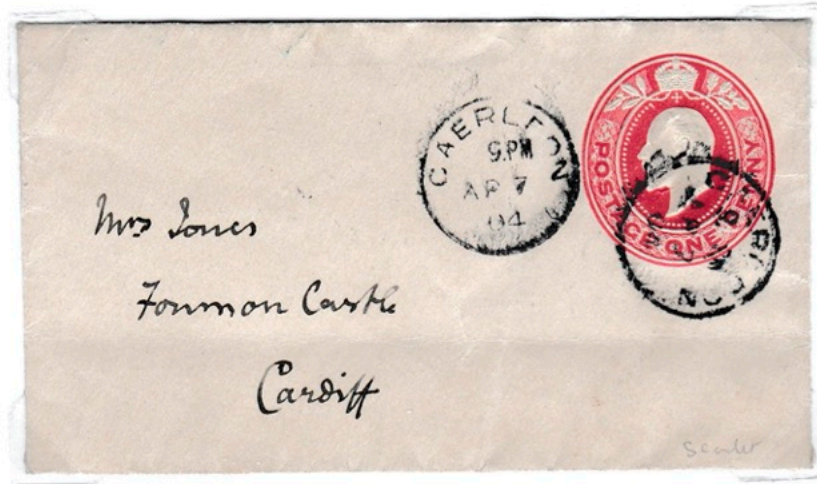 CAERLEON
9.PM
AP 7
04
POSTAGE ONE PENNY
CAERLEON
Mrs Jones
Fonmon Castle
Cardiff
Scarlet